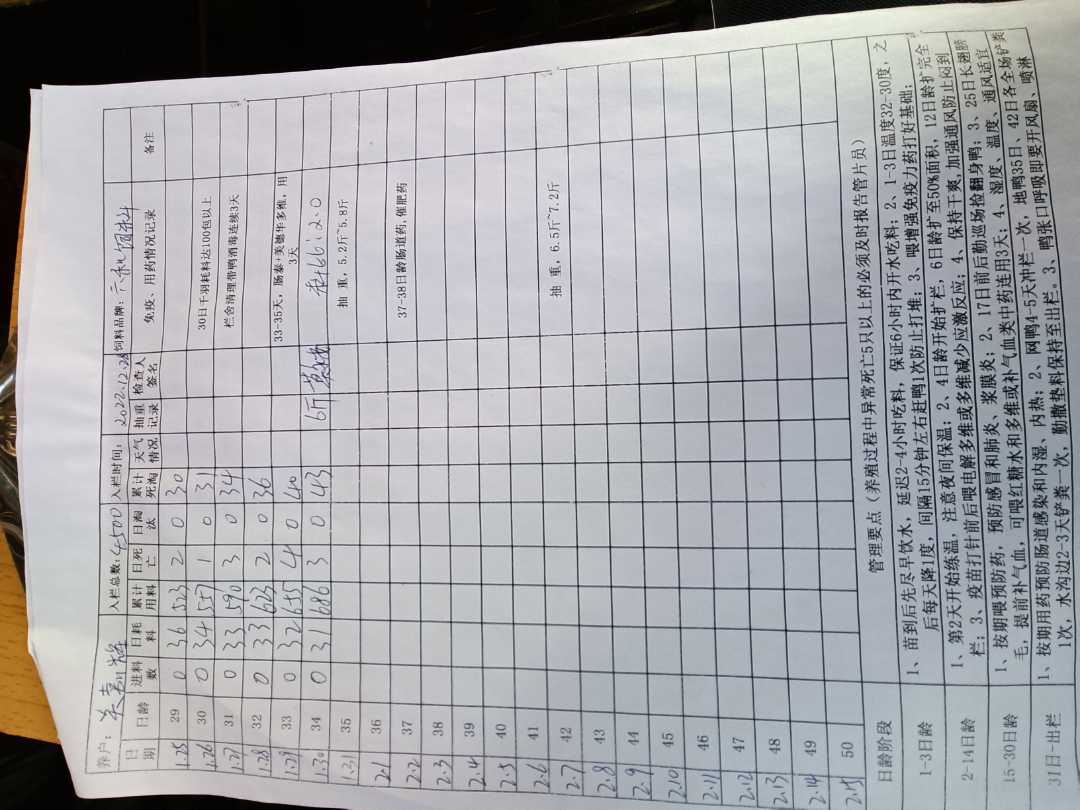 养户：吴嘉辉 入栏总数：4500 入栏时间：2022.12.28 饲料品牌：六和饲料
日期 日龄 进料数 日耗料 累计用料 日死亡 日淘汰 累计死淘 天气情况 抽重记录 检查人签名 免疫、用药情况记录 备注
1.25 29 0 36 523 2 0 30
1.26 30 0 34 557 1 0 31 30日千羽耗料达100包以上
1.27 31 0 33 590 3 0 34 栏舍清理带鸭消毒连续3天
1.28 32 0 33 623 2 0 36
1.29 33 0 32 655 4 0 40 33-35天，肠泰+美德华多维，用3天
1.30 34 0 31 686 3 0 43 6斤
1.31 35 抽 重，5.2斤~5.8斤
2.1 36
2.2 37 37-38日龄肠道药,催肥药
2.3 38
2.4 39
2.5 40
2.6 41
2.7 42 抽 重，6.5斤~7.2斤
2.8 43
2.9 44
2.10 45
2.11 46
2.12 47
2.13 48
2.14 49
2.15 50
日龄阶段 管理要点（养殖过程中异常死亡5只以上的必须及时报告管片员）
1-3日龄 1、苗到后先尽早饮水，延迟2-4小时吃料，保证6小时内开水吃料；2、1-3日温度32-30度，之
后每天降1度，间隔15分钟左右赶鸭1次防止打堆；3、喂增强免疫力药打好基础；
2-14日龄 1、第2天开始练温，注意夜间保温；2、4日龄开始扩栏，6日龄扩至50%面积，12日龄扩完全
栏；3、疫苗打针前后喂电解多维或多维减少应激反应；4、保持干爽,加强通风防止闷到
15-30日龄 1、按期喂预防药，预防感冒和肺炎、浆膜炎；2、17日前后勤巡场捡翻身鸭；3、25日长翅膀
毛，提前补气血，可喂红糖水和多维或补气血类中药连用3天；4、湿度、温度、通风适宜
31日-出栏 1、按期用药预防肠道感染和内湿、内热；2、网鸭4-5天冲栏一次，地鸭35日、42日各全场铲粪
1次，水沟边2-3天铲粪一次，勤撒垫料保持至出栏。3、鸭张口呼吸即要开风扇、喷淋